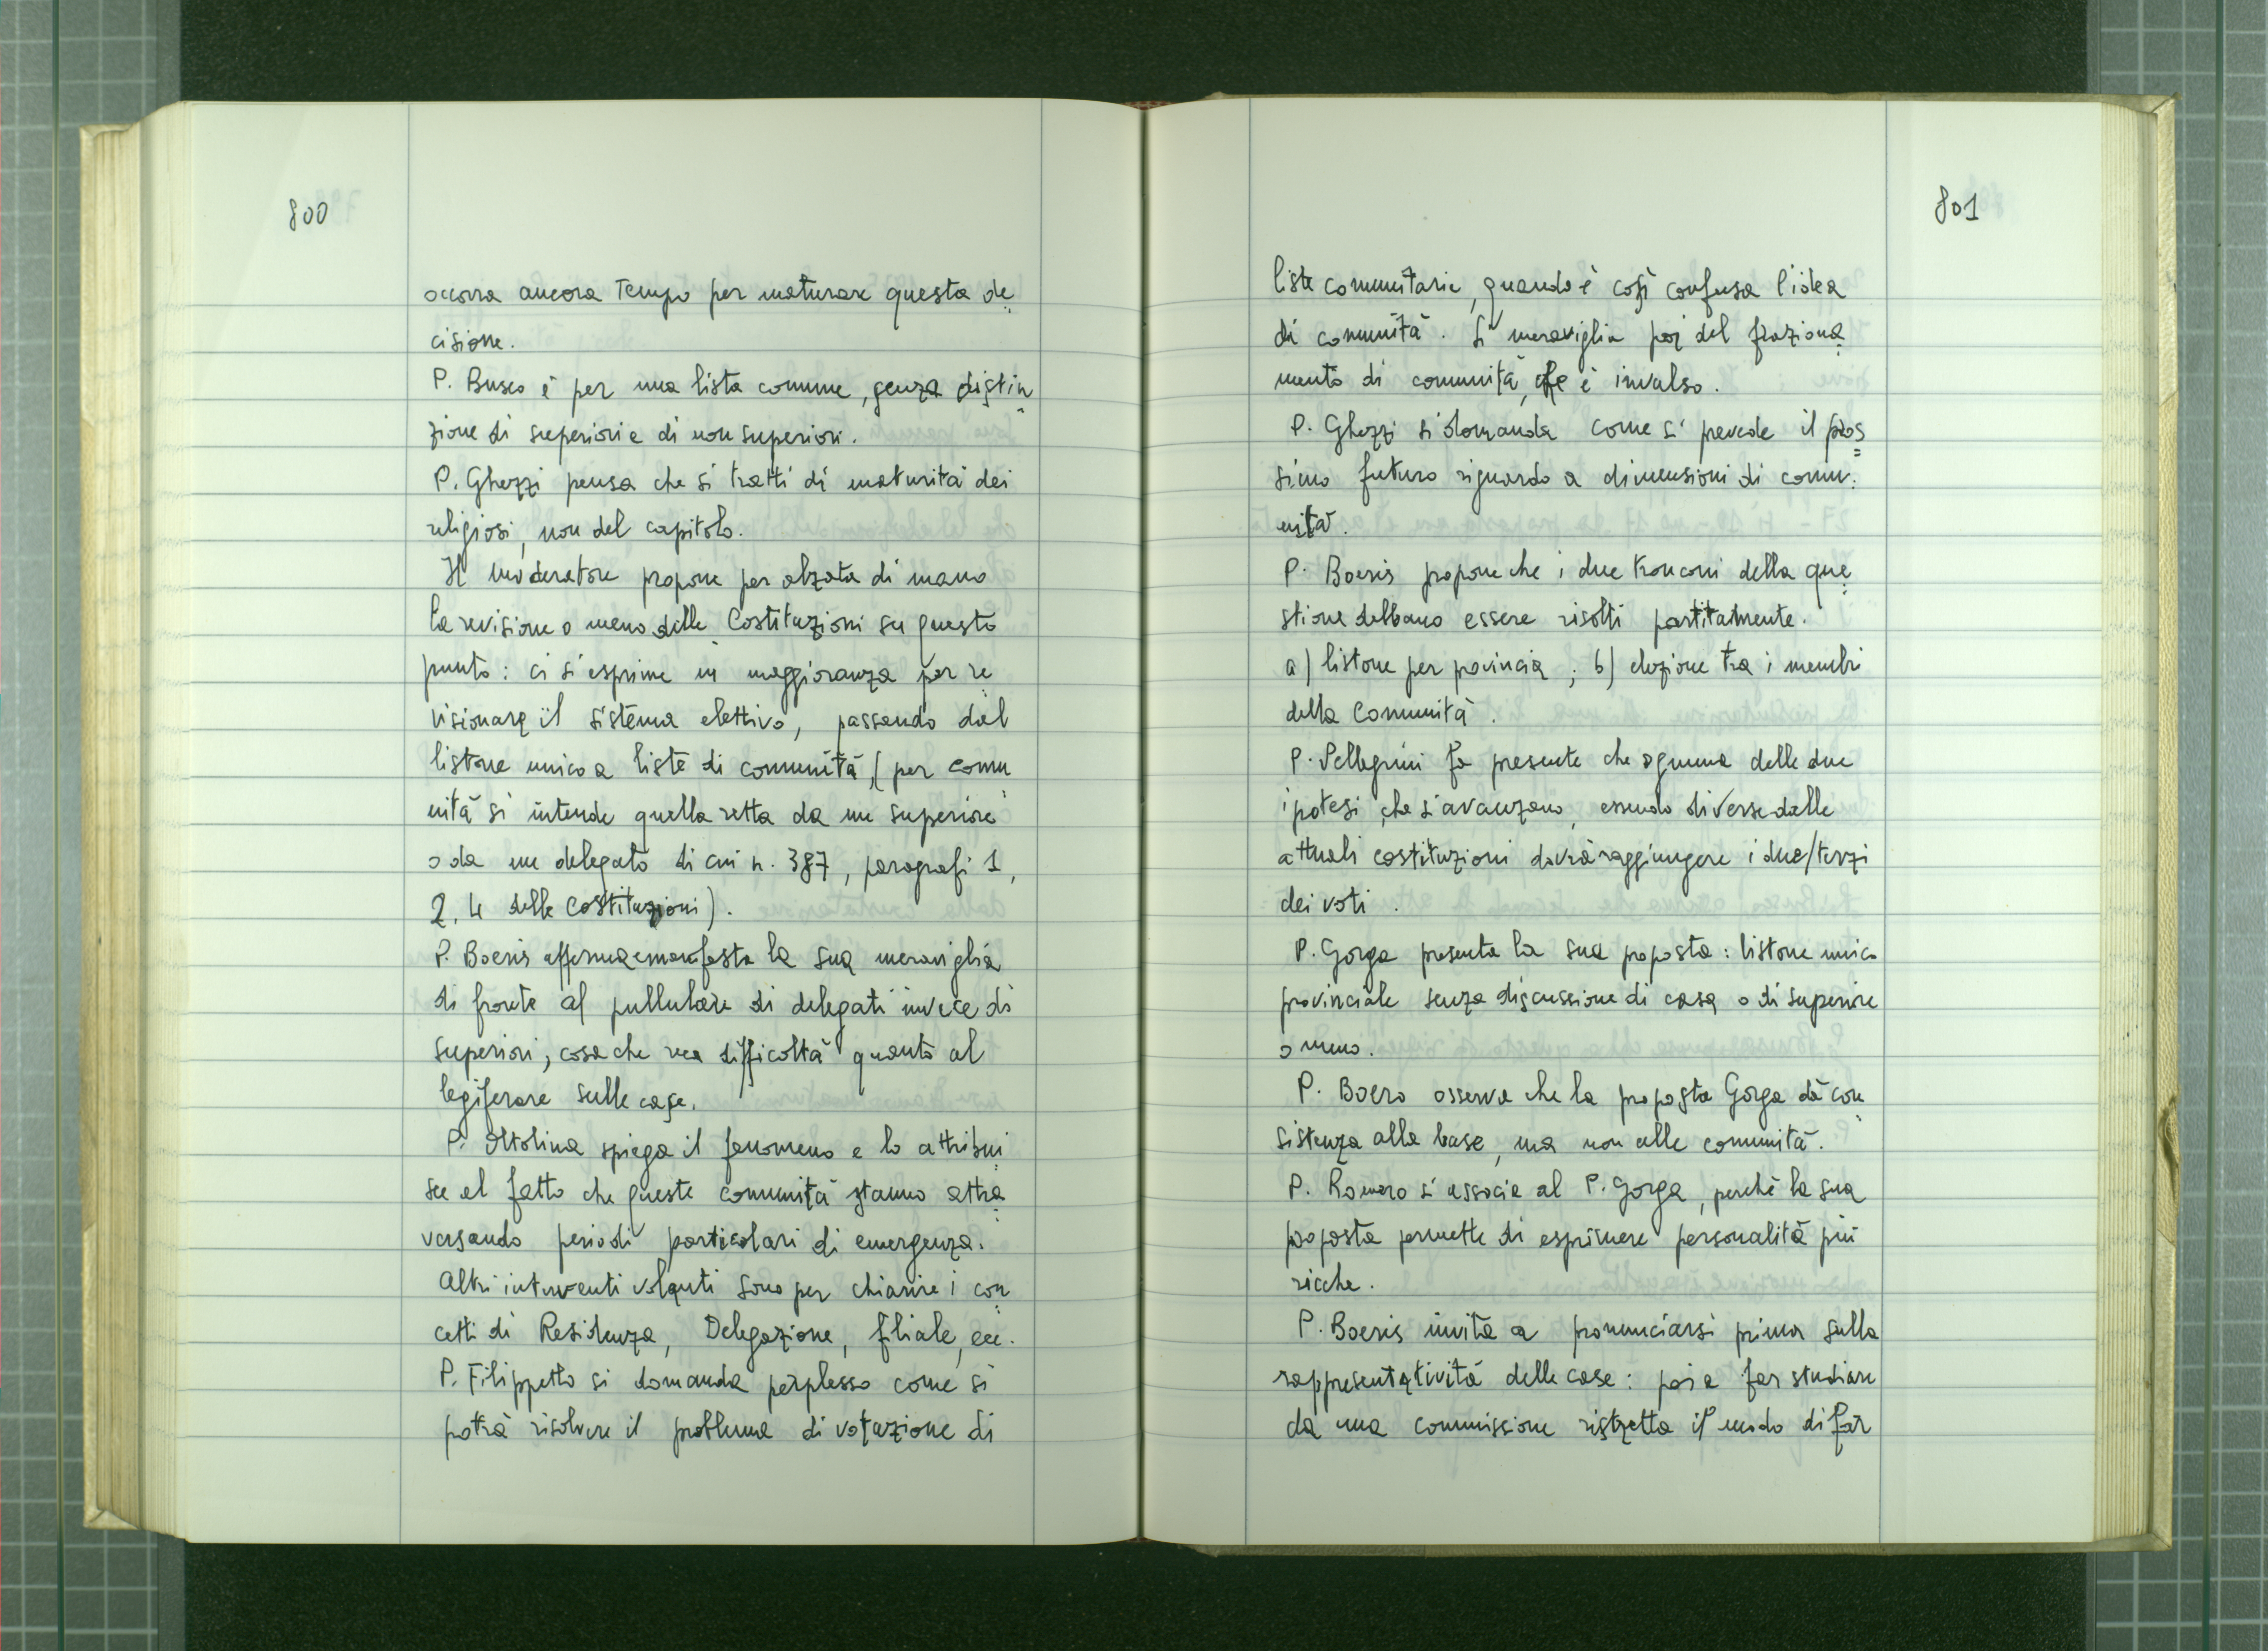 800
occorra ancora tempo per maturare questa de
cisione.
P. Busco è per una lista comune, senza distin
zione di superiori e di non superiori.
P. Ghezzi pensa che si tratti di maturità dei
religiosi, non del capitolo.
Il moderatore propone per alzata di mano
la revisione o meno delle Costituzioni su questo
punto: ci si esprime in maggioranza per re
visionare il sistema elettivo, passando dal
listone unico a liste di comunità, (per comu
nità si intende quella retta da un superiore
o da un delegato di cui n. 387, paragrafi 1,
2, 4 delle Costituzioni).
P. Boeris afferma e manifesta la sua meraviglia
di fronte al pullulare di delegati invece di
superiori, cosa che rea difficoltà quanto al
legiferare sulle case.
P. Ottolina spiega il fenomeno e lo attribui
sce al fatto che queste comunità stanno attra
versando periodi particolari di emergenza.
Altri interventi volanti sono per chiarire i con
cetti di Residenza, Delegazione, filiale, ecc.
P. Filippetto si domanda perplesso come si
potrà risolvere il problema di votazione di
801
liste comunitarie, quando è così confusa l'idea
di comunità. Si meraviglia poi del fraziona
mento di comunità, che è invalso.
P. Ghezzi si domanda come si prevede il pros
simo futuro riguardo a dimensioni di comu
nità.
P. Boeris propone che i due tronconi della que
stione debbano essere risolti partitamente.
a) listone per provincia; b) elezione tra i membri
della Comunità.
P. Pellegrini fa presente che ognuna delle due
ipotesi, che s'avanzano, essendo diverse dalle
attuali costituzioni dovrà raggiungere i due/terzi
dei voti.
P. Gorga presenta la sua proposta: listone unico
provinciale senza discussione di casa o di superiore
o meno.
P. Boero osserva che la proposta Gorga dà con
sistenza alla base, ma non alle comunità.
P. Romero si associa al P. Gorga, perchè la sua
proposta permette di esprimere personalità più
ricche.
P. Boeris invita a pronunciarsi prima sulla
rappresentatività delle case: poi a far studiare
da una commissione ristretta il modo di far